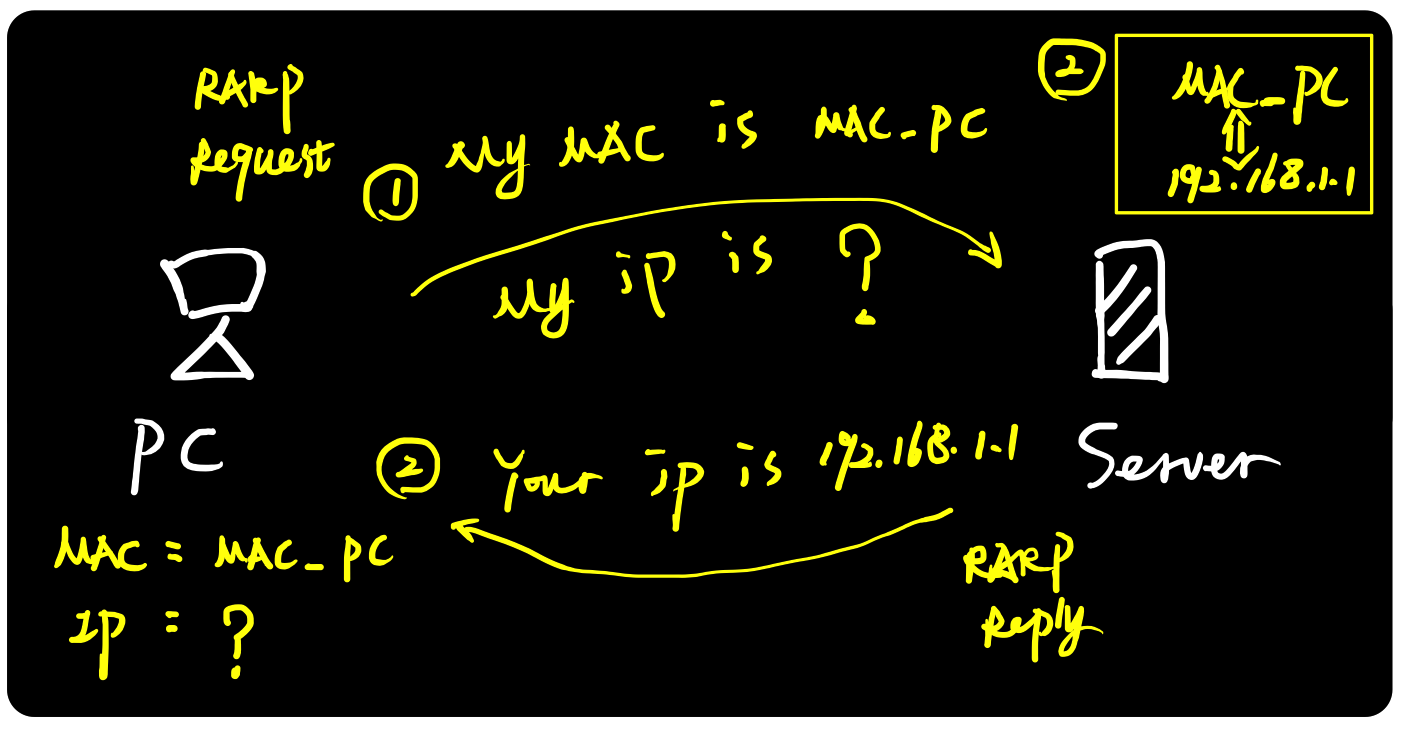 RARP
Request
① My MAC is MAC_PC
My ip is ?
②
MAC_PC
192.168.1.1
PC
Server
② Your ip is 192.168.1.1
MAC = MAC_PC
IP = ?
RARP
Reply